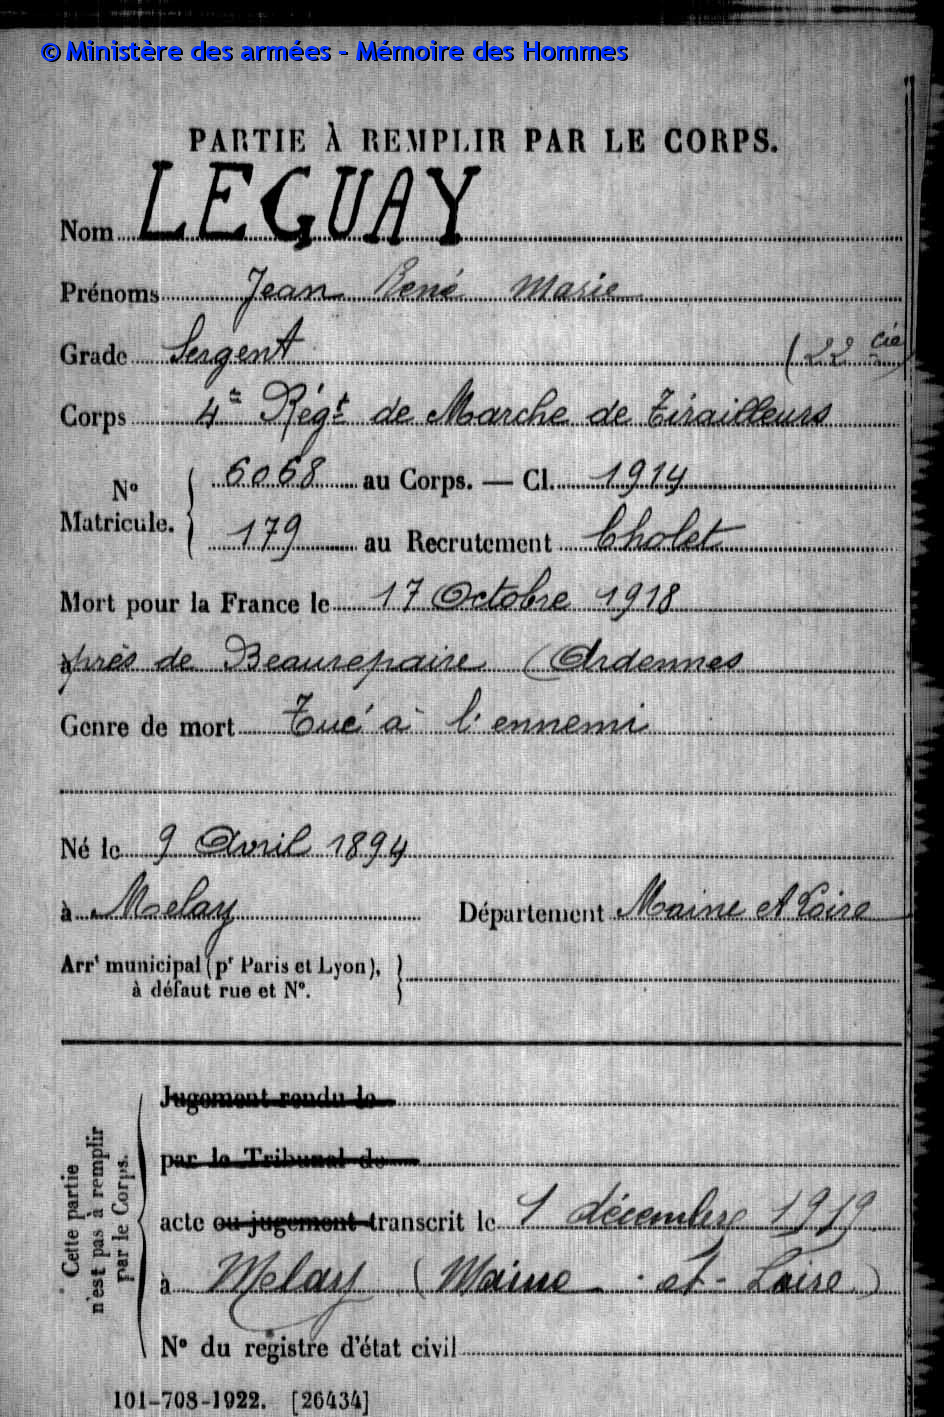 © Ministère des armées - Mémoire des Hommes
PARTIE À REMPLIR PAR LE CORPS.
Nom LEGUAY
Prénoms Jean René Marie
Grade Sergent (22 cie)
Corps 4e Régt de Marche de Tirailleurs
N° Matricule. { 6068 au Corps. — Cl. 1914
179 au Recrutement Cholet
Mort pour la France le 17 Octobre 1918
à près de Beaurepaire (Ardennes
Genre de mort Tué à l'ennemi
Né le 9 Avril 1894
à Melay Département Maine et Loire
Arrt municipal (pr Paris et Lyon),
à défaut rue et N°.
Cette partie
n'est pas à remplir
par le Corps.
Jugement rendu le
par le Tribunal de
acte ou jugement transcrit le 1 décembre 1919
à Melay (Maine-et-Loire)
N° du registre d'état civil
101-708-1922. [26434]